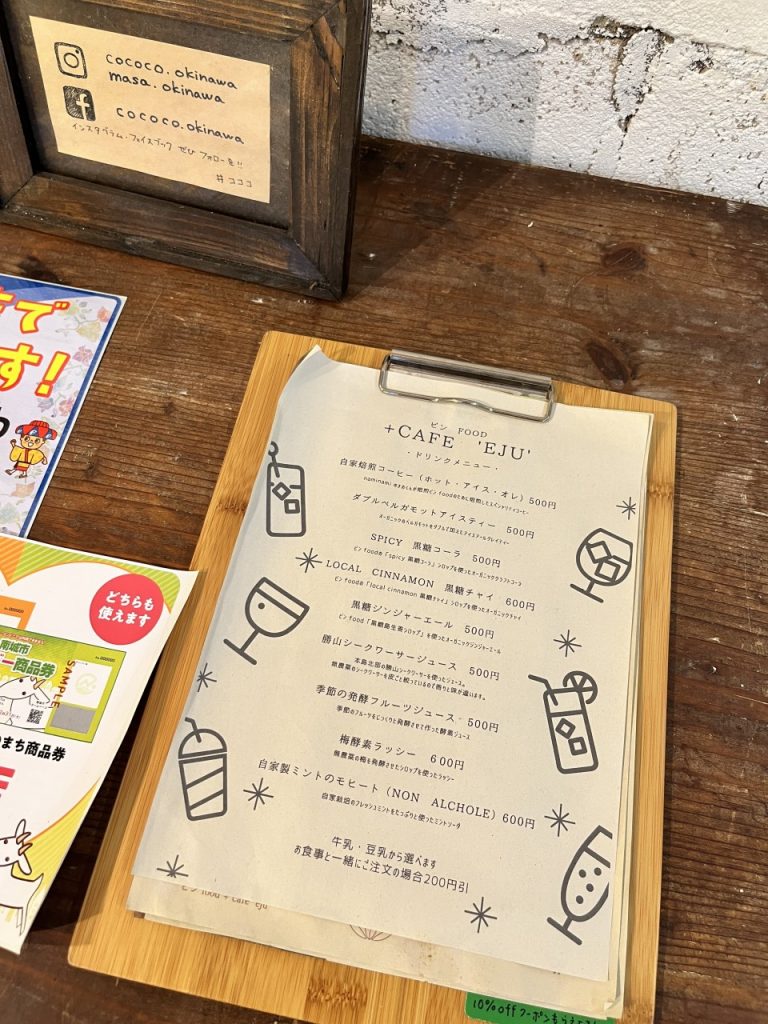 cococo.okinawa
masa.okinawa
cococo.okinawa
インスタグラム・フェイスブック ぜひ フォローを!!
# コココ
で
す!
どちらも
使えます
南城市
商品券
SAMPLE
まち商品券
ビン FOOD
+CAFE 'EJU'
・ドリンクメニュー・
自家焙煎コーヒー（ホット・アイス・オレ）500円
ダブルベルガモットアイスティー 500円
オーガニックのベルガモットをダブルで加えたアイスアールグレイティー
SPICY 黒糖コーラ 500円
ビン foodの「spicy 黒糖コーラ」シロップを使ったオーガニッククラフトコーラ
LOCAL CINNAMON 黒糖チャイ 600円
ビン foodの「local cinnamon 黒糖チャイ」シロップを使ったオーガニックチャイ
黒糖ジンジャーエール 500円
ビン food「黒糖島生姜シロップ」を使ったオーガニックジンジャーエール
勝山シークワーサージュース 500円
本島北部の勝山シークワーサーを使ったジュース。
無農薬のシークワーサーを皮ごと絞っているので香りと味が違います。
季節の発酵フルーツジュース 500円
季節のフルーツをじっくりと発酵させて作った酵素ジュース
梅酵素ラッシー 600円
無農薬の梅を発酵させたシロップを使ったラッシー
自家製ミントのモヒート（NON ALCHOLE）600円
自家栽培のフレッシュミントをたっぷりと使ったミントソーダ
牛乳・豆乳から選べます
お食事と一緒にご注文の場合200円引
ビン food + cafe eju
10%off クーポンもらえ